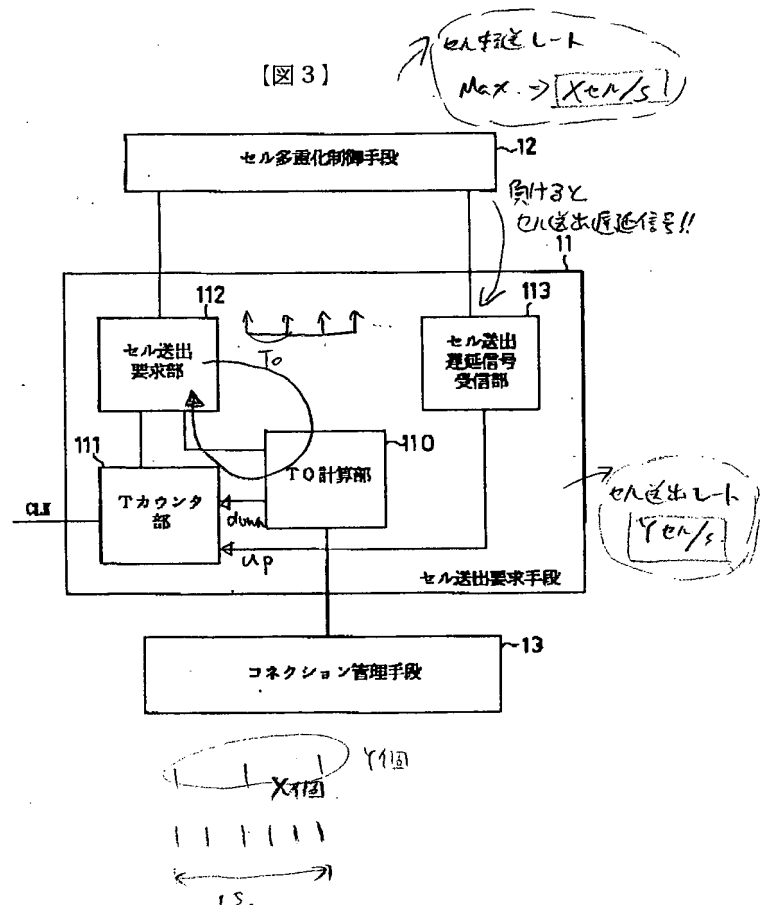 セル転送レート
【図3】
Max. ⇒ Xセル/s
セル多重化制御手段
12
負けると
セル送出遅延信号!!
11
112
113
セル送出
要求部
To
...
セル送出
遅延信号
受信部
111
110
Tカウンタ
部
T0計算部
CLK
down
up
セル送出レート
Yセル/s
セル送出要求手段
13
コネクション管理手段
Y個
X個
1s.